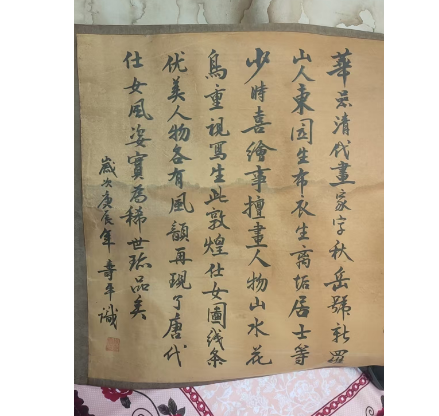 華喦清代畫家字秋岳號新羅
山人東园生布衣生离垢居士等
少時喜繪事擅畫人物山水花
鳥重視寫生此敦煌仕女圖线条
优美人物各有風韻再現了唐代
仕女風姿實為稀世珍品矣
歲次庚辰年壽平識